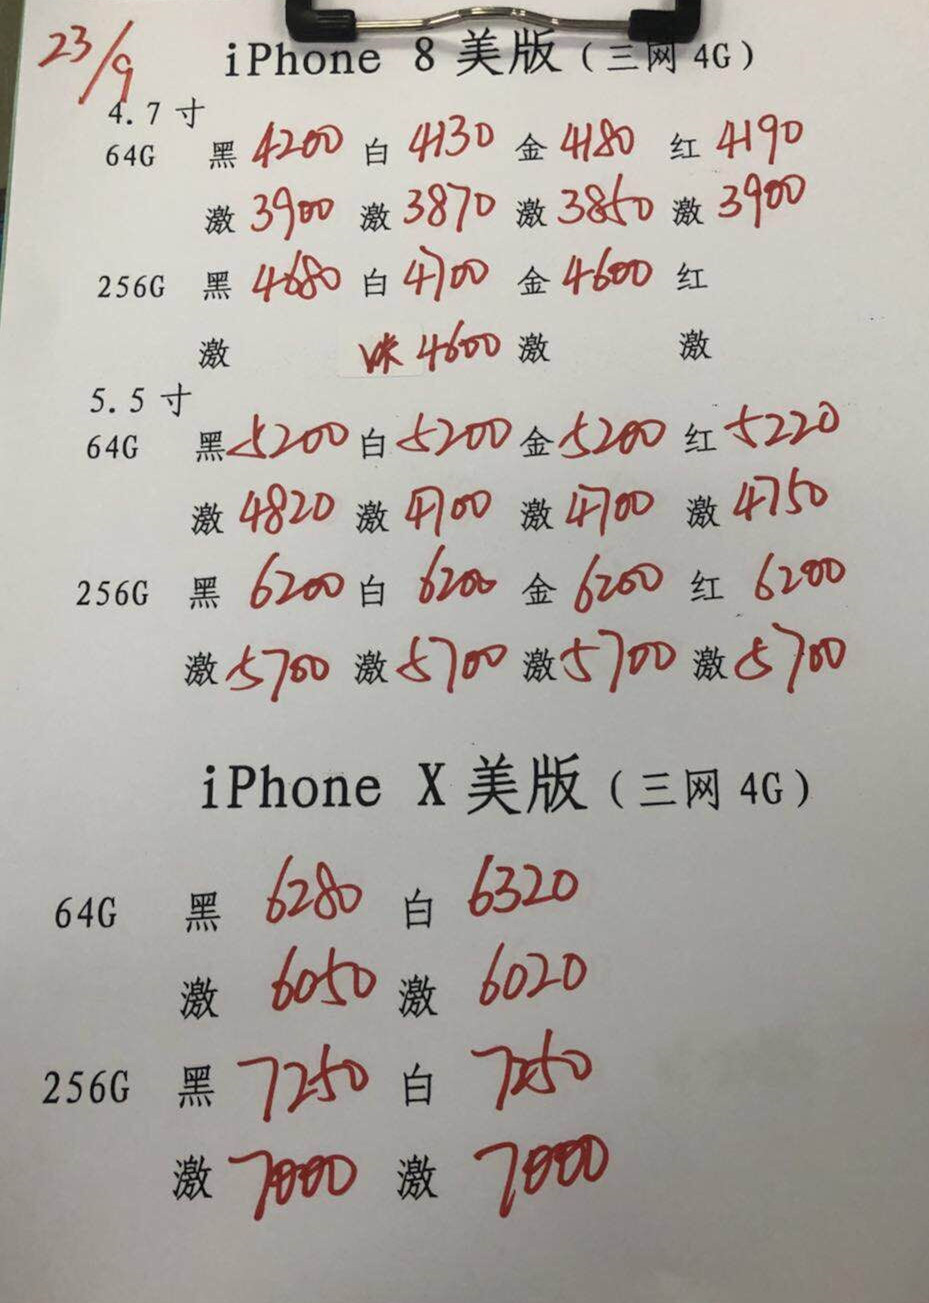 23/9
iPhone 8 美版（三网 4G）
4.7 寸
64G 黑 4200 白 4130 金 4180 红 4190
激 3900 激 3870 激 3850 激 3900
256G 黑 4680 白 4700 金 4600 红
激 4600 激 激
5.5 寸
64G 黑 5200 白 5200 金 5200 红 5220
激 4820 激 4700 激 4700 激 4750
256G 黑 6200 白 6200 金 6200 红 6200
激 5700 激 5700 激 5700 激 5700
iPhone X 美版（三网 4G）
64G 黑 6280 白 6320
激 6050 激 6020
256G 黑 7250 白 7250
激 7000 激 7000